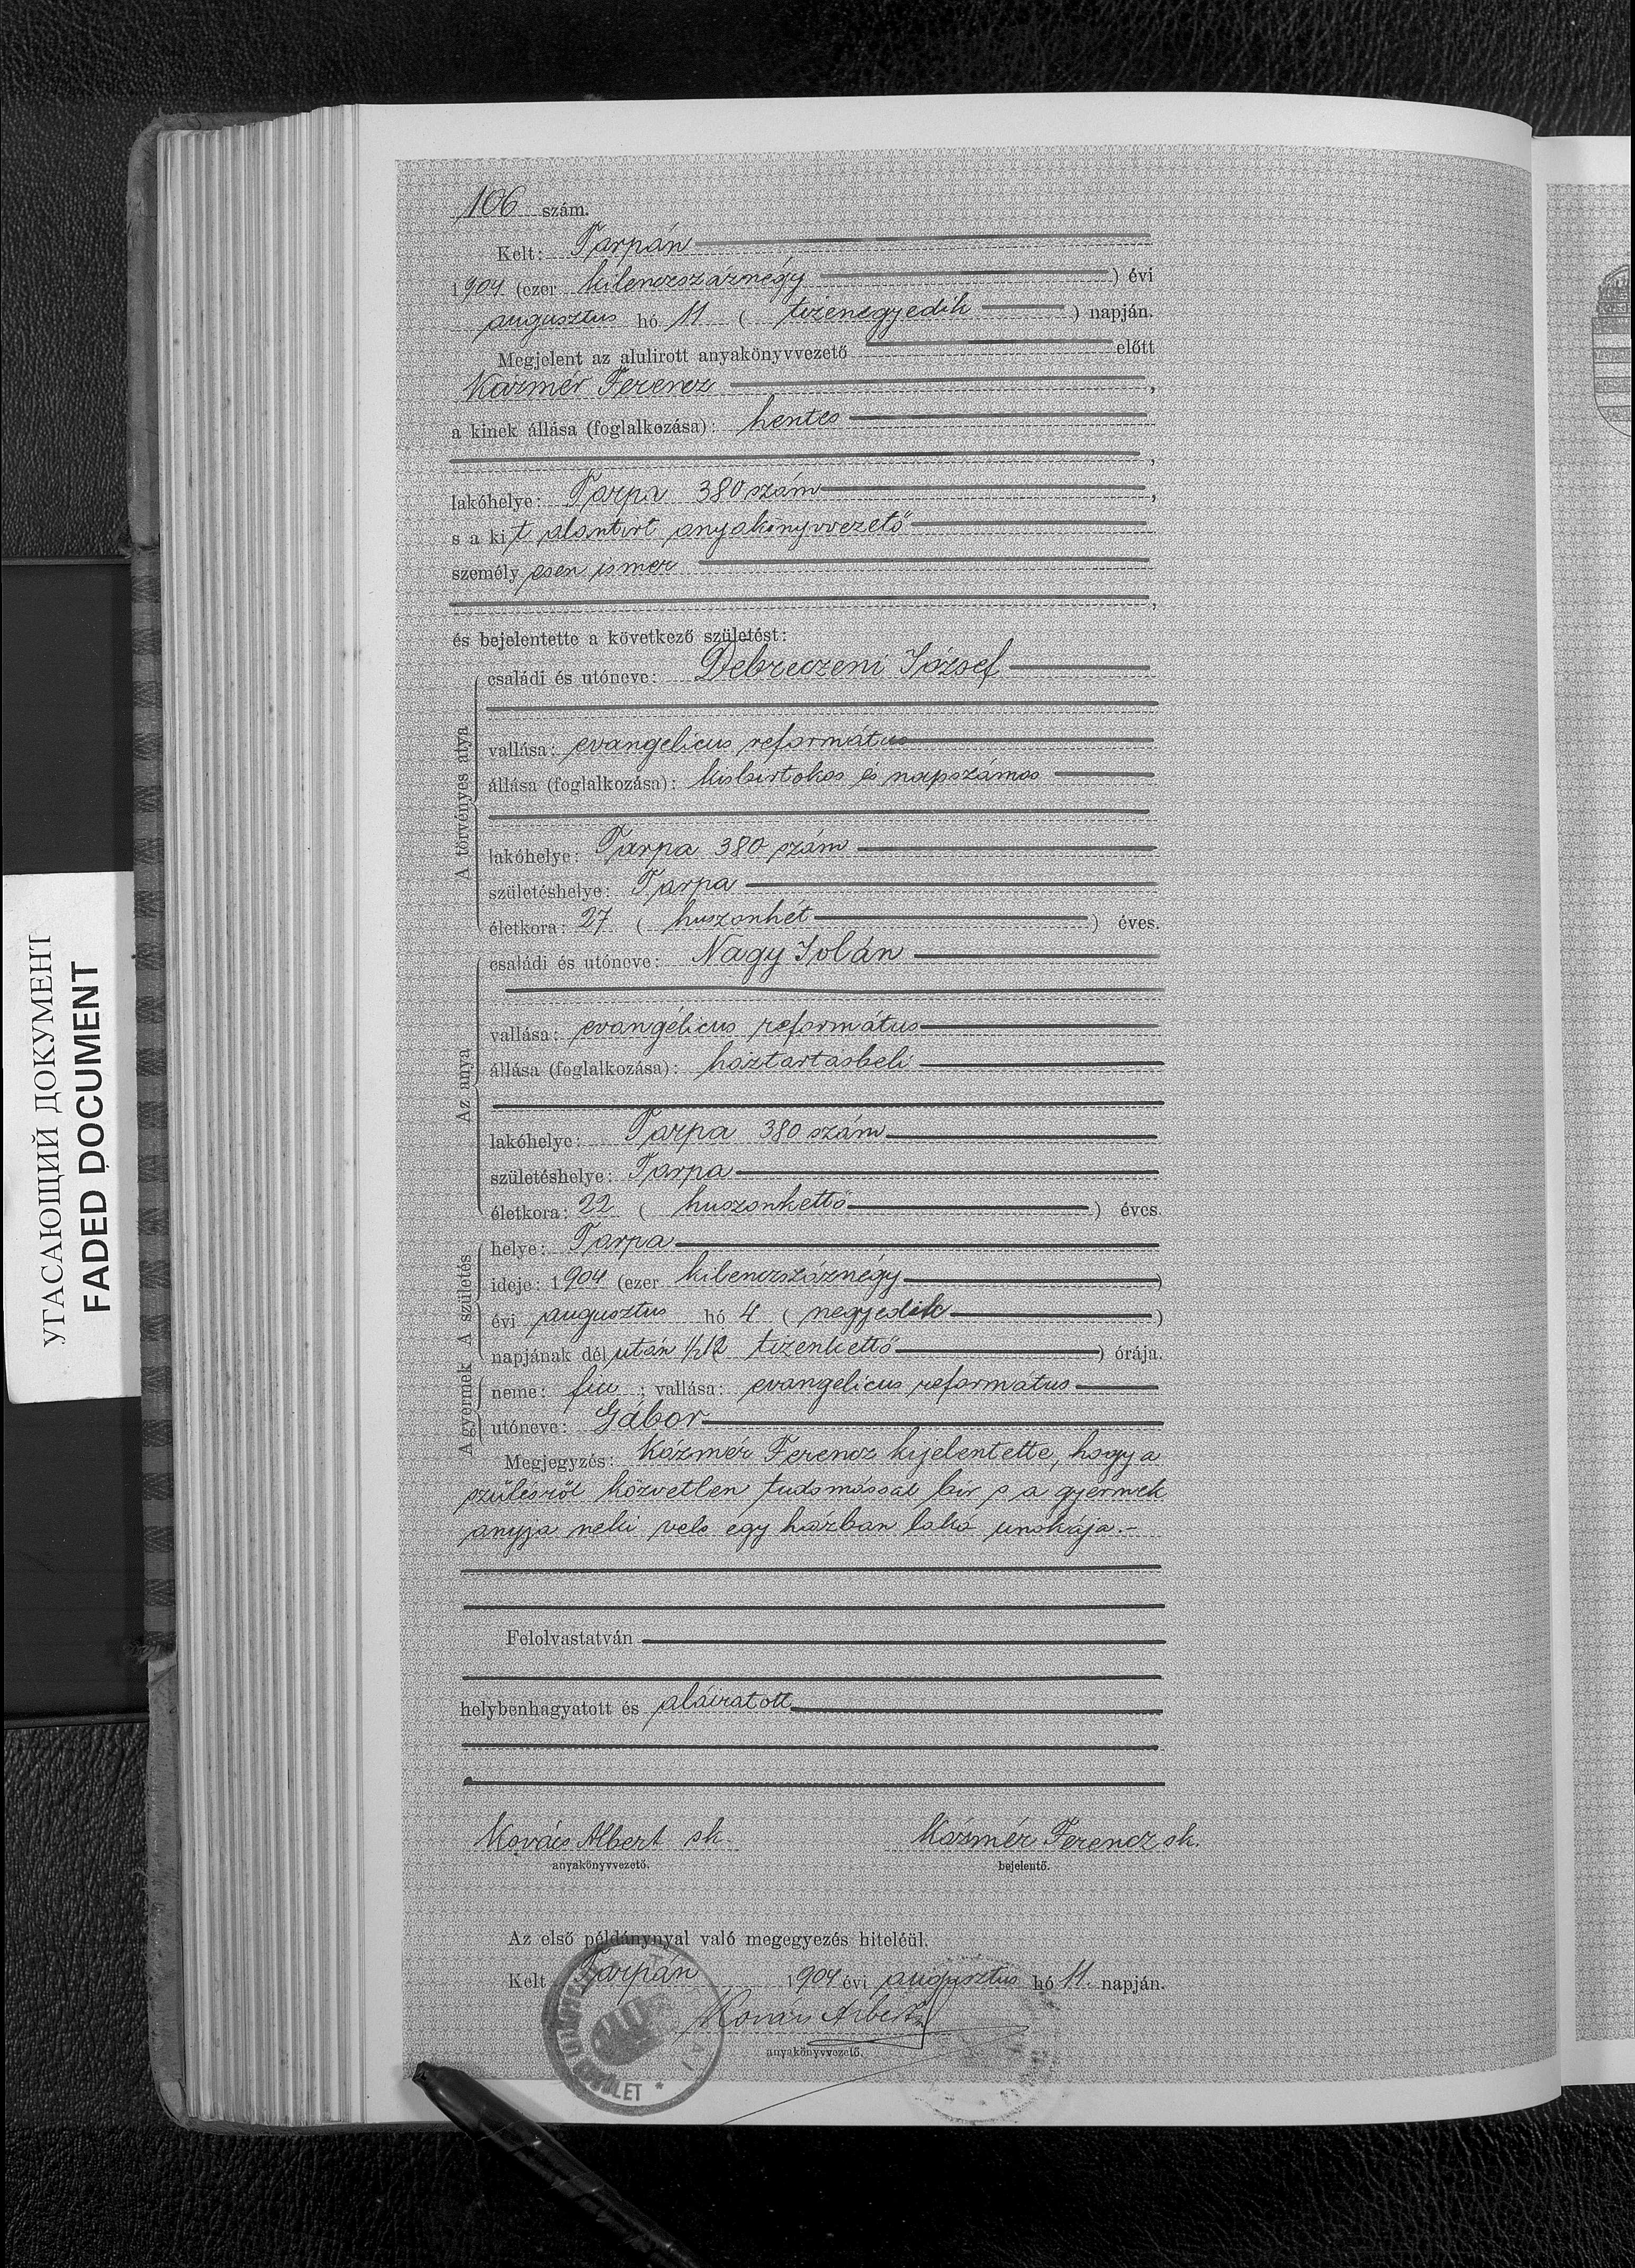 106 szám.
Kelt: Tarpán
1904 (ezer kilenczszáznégy ) évi
augusztus hó 11 ( tizenegyedik ) napján.
Megjelent az alulirott anyakönyvvezető előtt
Kázmér Ferencz ,
a kinek állása (foglalkozása): hentes
,
lakóhelye: Tarpa 380 szám ,
s a kit alantirt anyakönyvvezető
személyesen ismer
,
és bejelentette a következő születést:
A törvényes atya
családi és utóneve: Debreczeni József
vallása: evangelicus református
állása (foglalkozása): kisbirtokos és napszámos
lakóhelye: Tarpa 380 szám
születéshelye: Tarpa
életkora: 27 ( huszonhét ) éves.
Az anya
családi és utóneve: Nagy Jolán
vallása: evangélicus református
állása (foglalkozása): háztartásbeli
lakóhelye: Tarpa 380 szám
születéshelye: Tarpa
életkora: 22 ( huszonkettő ) éves.
A születés
helye: Tarpa
ideje: 1904 (ezer kilenczszáznégy )
évi augusztus hó 4 ( negyedik )
napjának délután 1/2 12 tizenkettő ) órája.
A gyermek
neme: fiu ; vallása: evangelicus református
utóneve: Gábor
Megjegyzés: Kázmér Ferencz kijelentette, hogy a
szülésről közvetlen tudomással bir s a gyermek
anyja neki vele egy házban lakó unokája.-
Felolvastatván
helybenhagyatott és aláiratott
Kovács Albert sk. Kázmér Ferencz sk.
anyakönyvvezető. bejelentő.
Az első példánynyal való megegyezés hiteléül.
Kelt Tarpán 1904 évi augusztus hó 11. napján.
Kovács Albert
anyakönyvvezető.
УГАСАЮЩИЙ ДОКУМЕНТ
FADED DOCUMENT